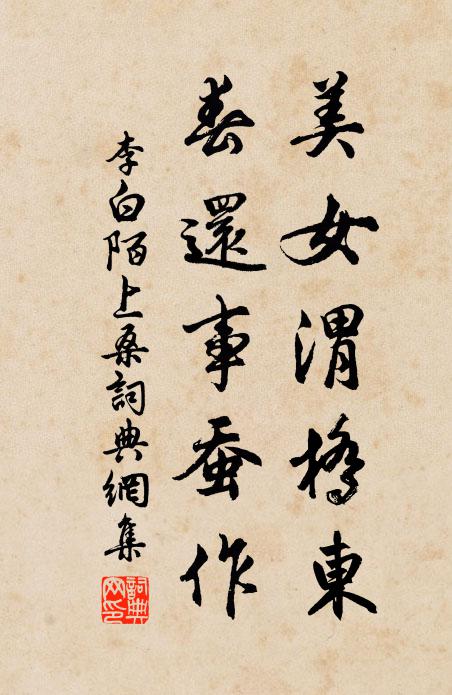 美女渭橋東
春還事蚕作
李白陌上桑詞典網集
詞典网印